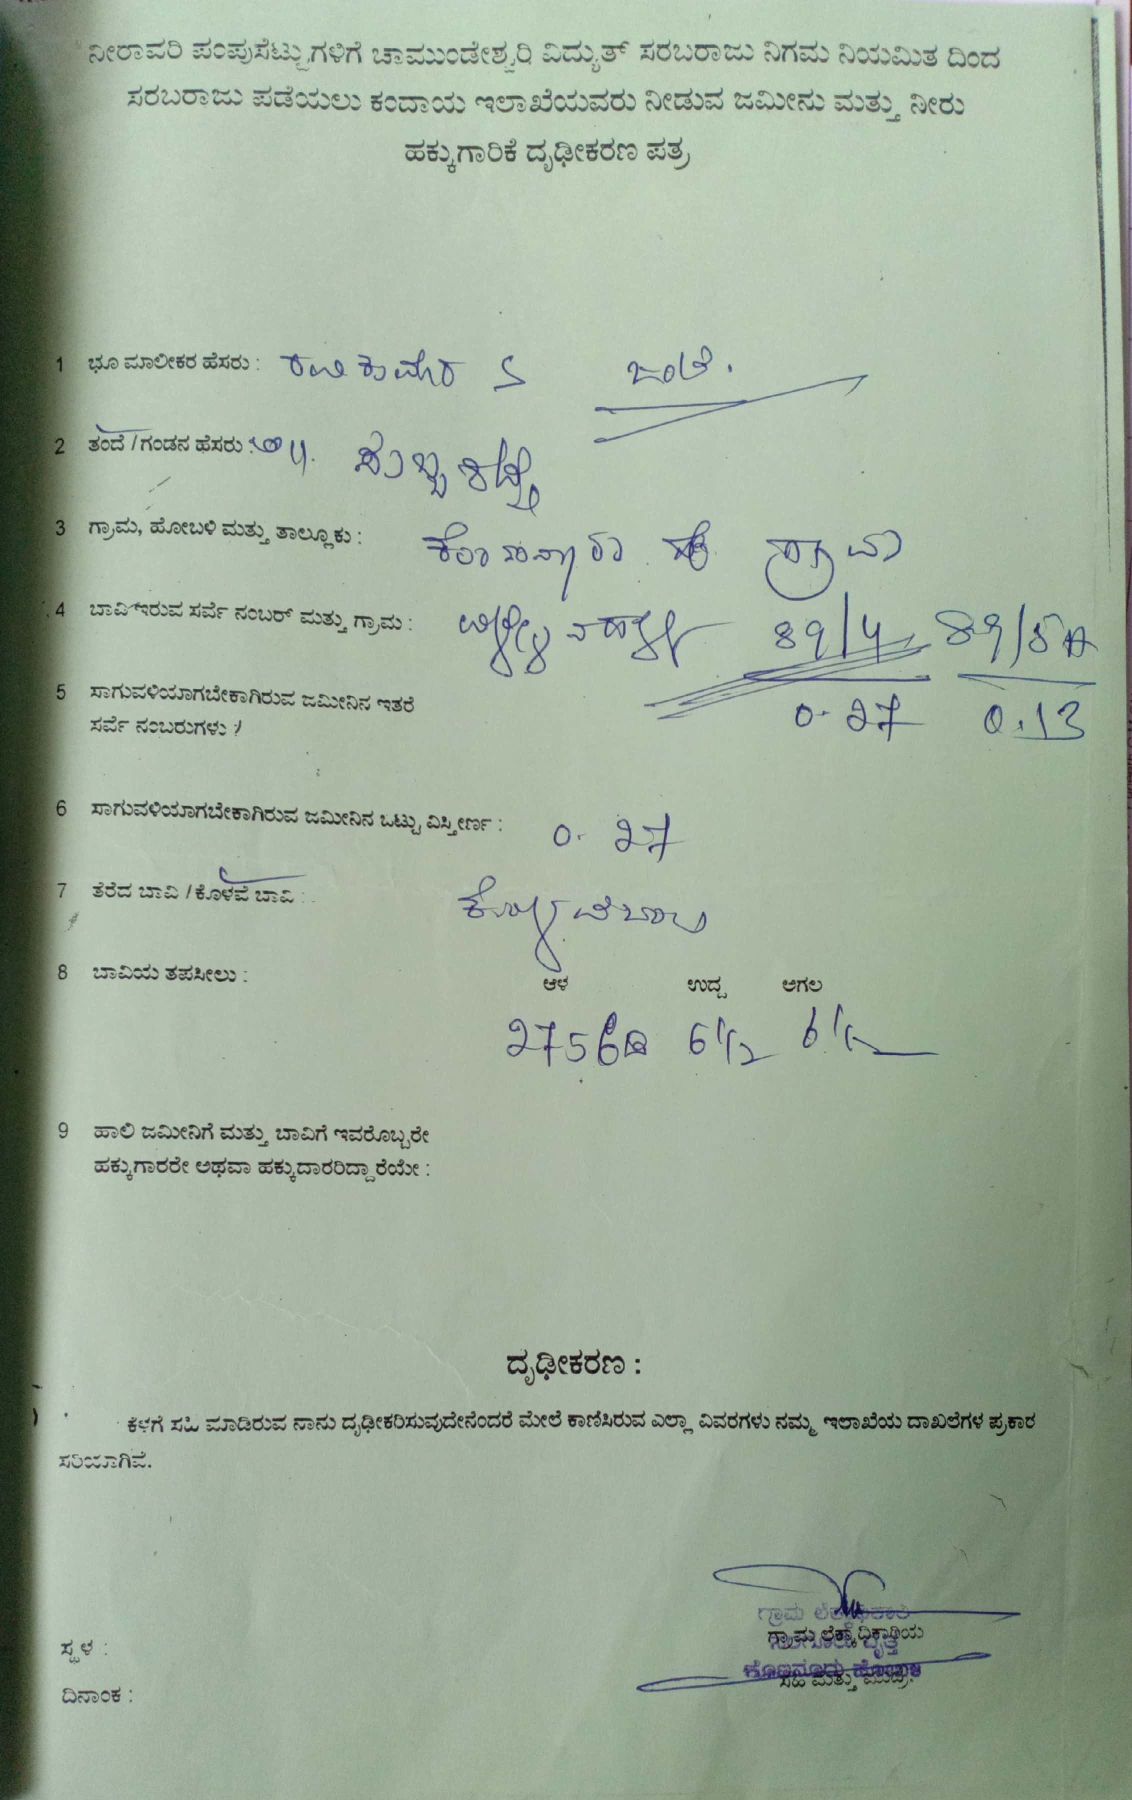 ನೀರಾವರಿ ಪಂಪುಸೆಟ್ಟುಗಳಿಗೆ ಚಾಮುಂಡೇಶ್ವರಿ ವಿದ್ಯುತ್ ಸರಬರಾಜು ನಿಗಮ ನಿಯಮಿತ ದಿಂದ
ಸರಬರಾಜು ಪಡೆಯಲು ಕಂದಾಯ ಇಲಾಖೆಯವರು ನೀಡುವ ಜಮೀನು ಮತ್ತು ನೀರು
ಹಕ್ಕುಗಾರಿಕೆ ದೃಢೀಕರಣ ಪತ್ರ
1 ಭೂ ಮಾಲೀಕರ ಹೆಸರು : ರವಿಕುಮಾರ S ಜಂಟಿ.
2 ತಂದೆ / ಗಂಡನ ಹೆಸರು :
3 ಗ್ರಾಮ, ಹೋಬಳಿ ಮತ್ತು ತಾಲ್ಲೂಕು :
4 ಬಾವಿ ಇರುವ ಸರ್ವೆ ನಂಬರ್ ಮತ್ತು ಗ್ರಾಮ : 89/4 89/5A
5 ಸಾಗುವಳಿಯಾಗಬೇಕಾಗಿರುವ ಜಮೀನಿನ ಇತರೆ 0-27 0.13
ಸರ್ವೆ ನಂಬರುಗಳು :
6 ಸಾಗುವಳಿಯಾಗಬೇಕಾಗಿರುವ ಜಮೀನಿನ ಒಟ್ಟು ವಿಸ್ತೀರ್ಣ : 0-27
7 ತೆರೆದ ಬಾವಿ / ಕೊಳವೆ ಬಾವಿ : ಕೊಳವೆಬಾವಿ
8 ಬಾವಿಯ ತಪಸೀಲು : ಆಳ ಉದ್ದ ಅಗಲ
275 6 1/2 6 1/2
9 ಹಾಲಿ ಜಮೀನಿಗೆ ಮತ್ತು ಬಾವಿಗೆ ಇವರೊಬ್ಬರೇ
ಹಕ್ಕುಗಾರರೇ ಅಥವಾ ಹಕ್ಕುದಾರರಿದ್ದಾರೆಯೇ :
ದೃಢೀಕರಣ :
ಕೆಳಗೆ ಸಹಿ ಮಾಡಿರುವ ನಾನು ದೃಢೀಕರಿಸುವುದೇನೆಂದರೆ ಮೇಲೆ ಕಾಣಿಸಿರುವ ಎಲ್ಲಾ ವಿವರಗಳು ನಮ್ಮ ಇಲಾಖೆಯ ದಾಖಲೆಗಳ ಪ್ರಕಾರ
ಸರಿಯಾಗಿವೆ.
ಗ್ರಾಮ ಲೆಕ್ಕಾಧಿಕಾರಿ
ಸ್ಥಳ : ಗ್ರಾಮ ಲೆಕ್ಕಾಧಿಕಾರಿಯ
ವೃತ್ತ
ದಿನಾಂಕ : ಸಹಿ ಮತ್ತು ಮುದ್ರೆ.